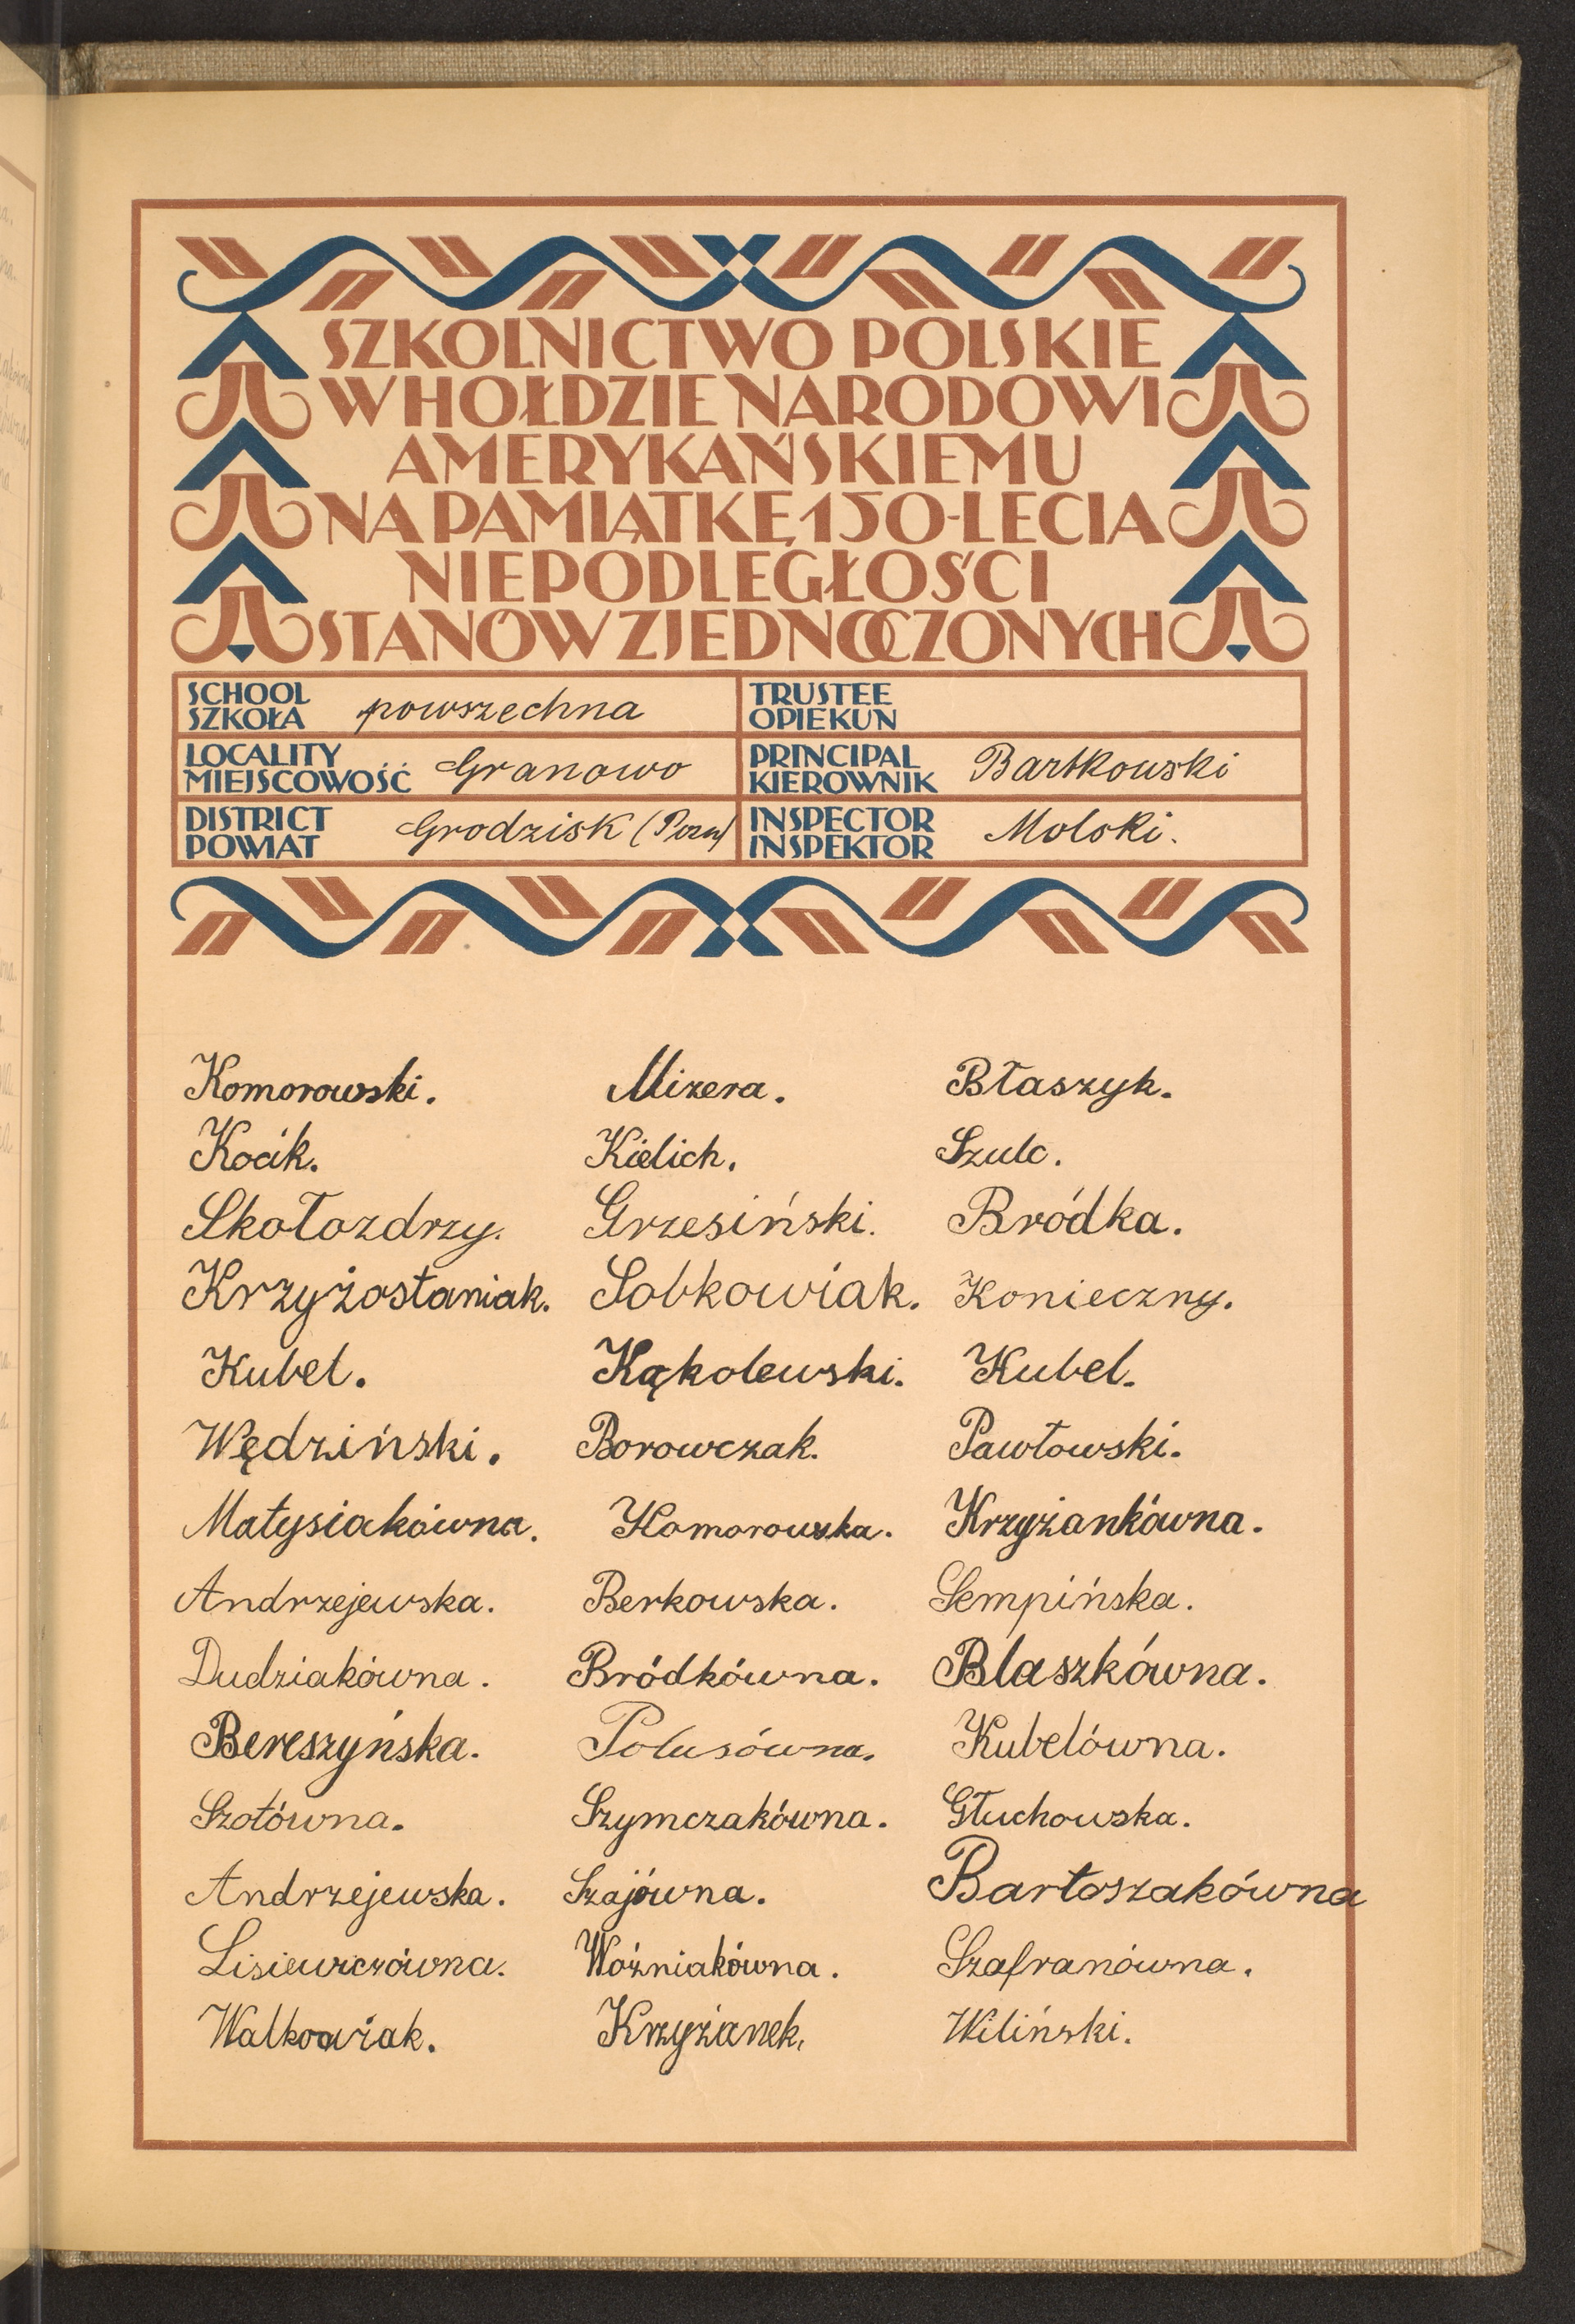 SZKOLNICTWO POLSKIE
W HOŁDZIE NARODOWI
AMERYKAŃSKIEMU
NA PAMIĄTKĘ 150-LECIA
NIEPODLEGŁOŚCI
STANÓW ZJEDNOCZONYCH
SCHOOL
SZKOŁA powszechna
TRUSTEE
OPIEKUN
LOCALITY
MIEJSCOWOŚĆ Granowo
PRINCIPAL
KIEROWNIK Bartkowski
DISTRICT
POWIAT Grodzisk (Pozn)
INSPECTOR
INSPEKTOR Molski.
Komorowski. Mizera. Błaszyk.
Kocik. Kielich. Szulc.
Skołozdrzy. Grzesiński. Bródka.
Krzyżostaniak. Sobkowiak. Konieczny.
Kubel. Kąkolewski. Kubel.
Wędziński. Borowczak. Pawłowski.
Matysiakówna. Komorowska. Krzyżankówna.
Andrzejewska. Berkowska. Sempińska.
Dudziakówna. Bródkówna. Blaszkówna.
Bereszyńska. Polusówna. Kubelówna.
Szotówna. Szymczakówna. Głuchowska.
Andrzejewska. Szajówna. Bartoszakówna
Lisiewiczówna. Woźniakówna. Szafranówna.
Walkowiak. Krzyżanek. Wiliński.